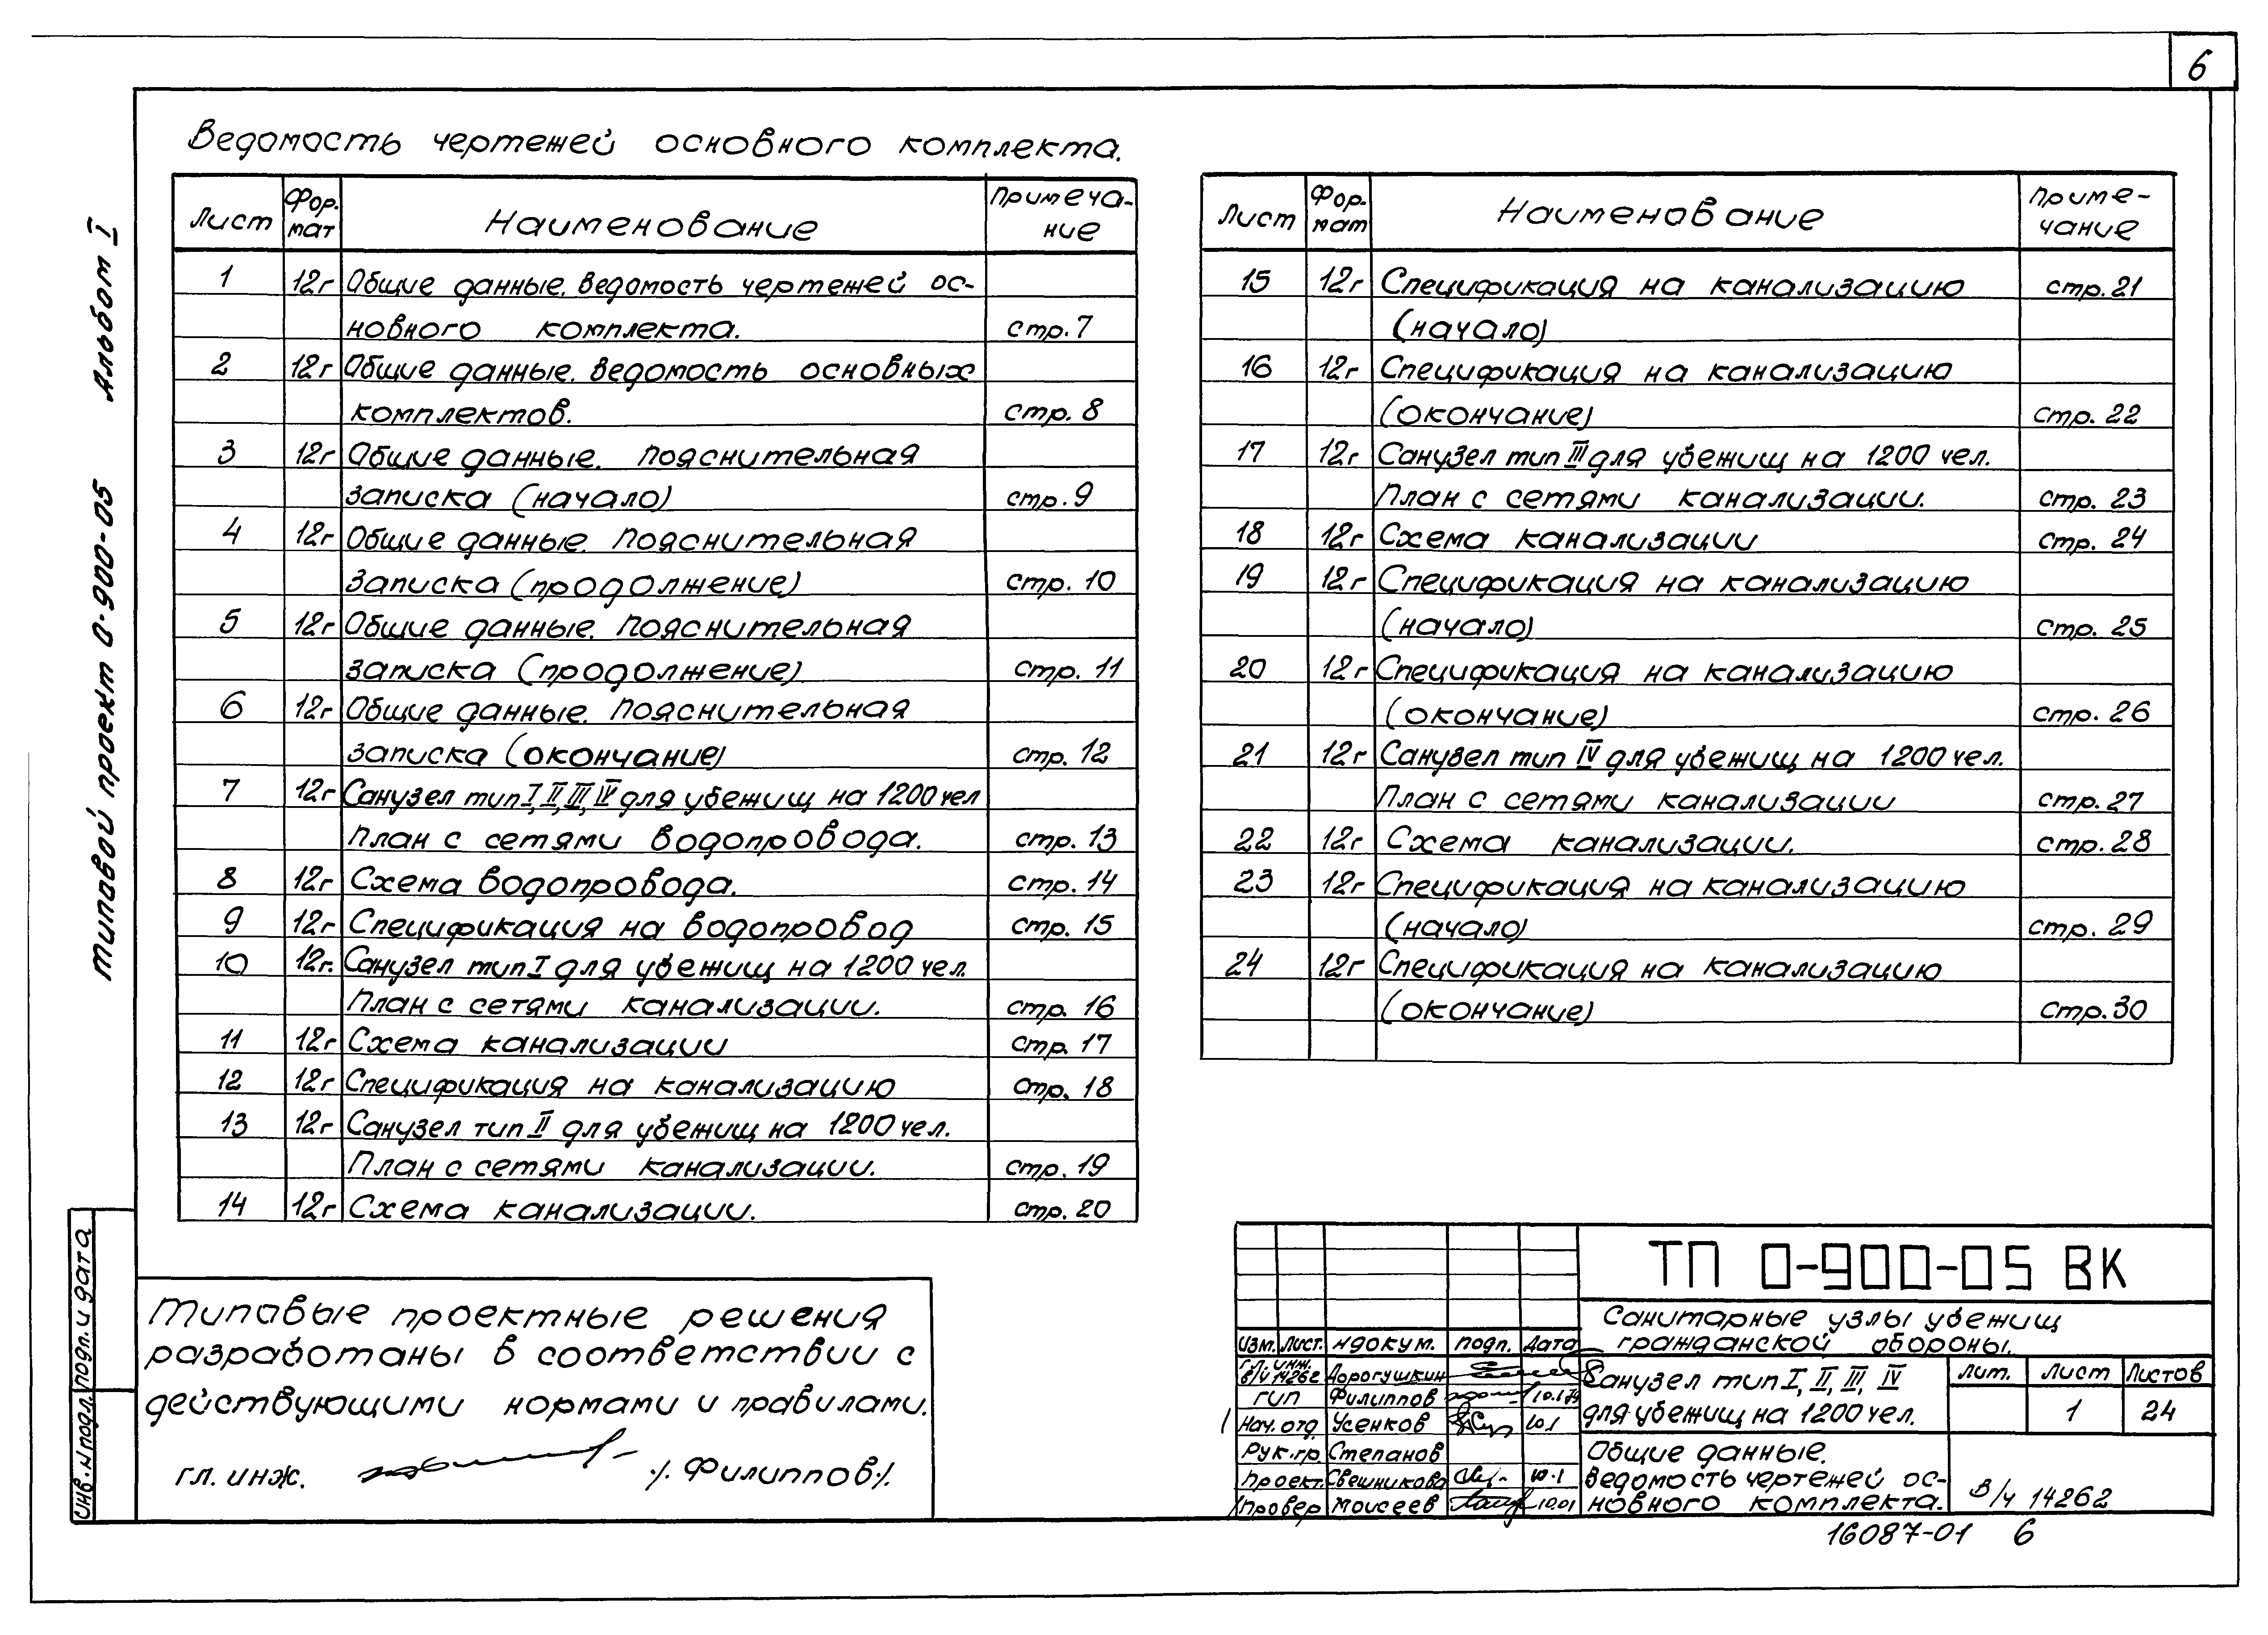 6
Ведомость чертежей основного комплекта.
Типовой проект 0-900-05 Альбом I
Лист Фор. Наименование Примеча-
мат ние
1 12г Общие данные. Ведомость чертежей ос-
новного комплекта. стр. 7
2 12г Общие данные. Ведомость основных
комплектов. стр. 8
3 12г Общие данные. Пояснительная
записка (начало) стр. 9
4 12г Общие данные. Пояснительная
записка (продолжение) стр. 10
5 12г Общие данные. Пояснительная
записка (продолжение) стр. 11
6 12г Общие данные. Пояснительная
записка (окончание) стр. 12
7 12г Санузел тип I, II, III, IV для убежищ на 1200 чел
План с сетями водопровода. стр. 13
8 12г Схема водопровода. стр. 14
9 12г Спецификация на водопровод стр. 15
10 12г. Санузел тип I для убежищ на 1200 чел.
План с сетями канализации. стр. 16
11 12г Схема канализации стр. 17
12 12г Спецификация на канализацию стр. 18
13 12г Санузел тип II для убежищ на 1200 чел.
План с сетями канализации. стр. 19
14 12г Схема канализации. стр. 20
Лист Фор- Наименование Приме-
мат чание
15 12г Спецификация на канализацию стр. 21
(начало)
16 12г Спецификация на канализацию
(окончание) стр. 22
17 12г Санузел тип III для убежищ на 1200 чел.
План с сетями канализации. стр. 23
18 12г Схема канализации стр. 24
19 12г Спецификация на канализацию
(начало) стр. 25
20 12г Спецификация на канализацию
(окончание) стр. 26
21 12г Санузел тип IV для убежищ на 1200 чел.
План с сетями канализации стр. 27
22 12г Схема канализации. стр. 28
23 12г Спецификация на канализацию
(начало) стр. 29
24 12г Спецификация на канализацию
(окончание) стр. 30
Типовые проектные решения
разработаны в соответствии с
действующими нормами и правилами.
гл. инж. ∕. Филиппов ∕.
Инв. № подл. Подп. и дата
ТП 0-900-05 ВК
Санитарные узлы убежищ
гражданской обороны.
Изм. Лист. № докум. Подп. Дата
Гл. инж.
в/ч 14262 Дорогушкин
ГИП Филиппов 10.1.79
Нач. отд. Усенков 10.1
Рук. гр. Степанов
Проект. Свешникова 10.1
Провер Моисеев 10.01
Санузел тип I, II, III, IV
для убежищ на 1200 чел.
Лит. Лист Листов
1 24
Общие данные.
Ведомость чертежей ос-
новного комплекта.
В/ч 14262
16087-01 6